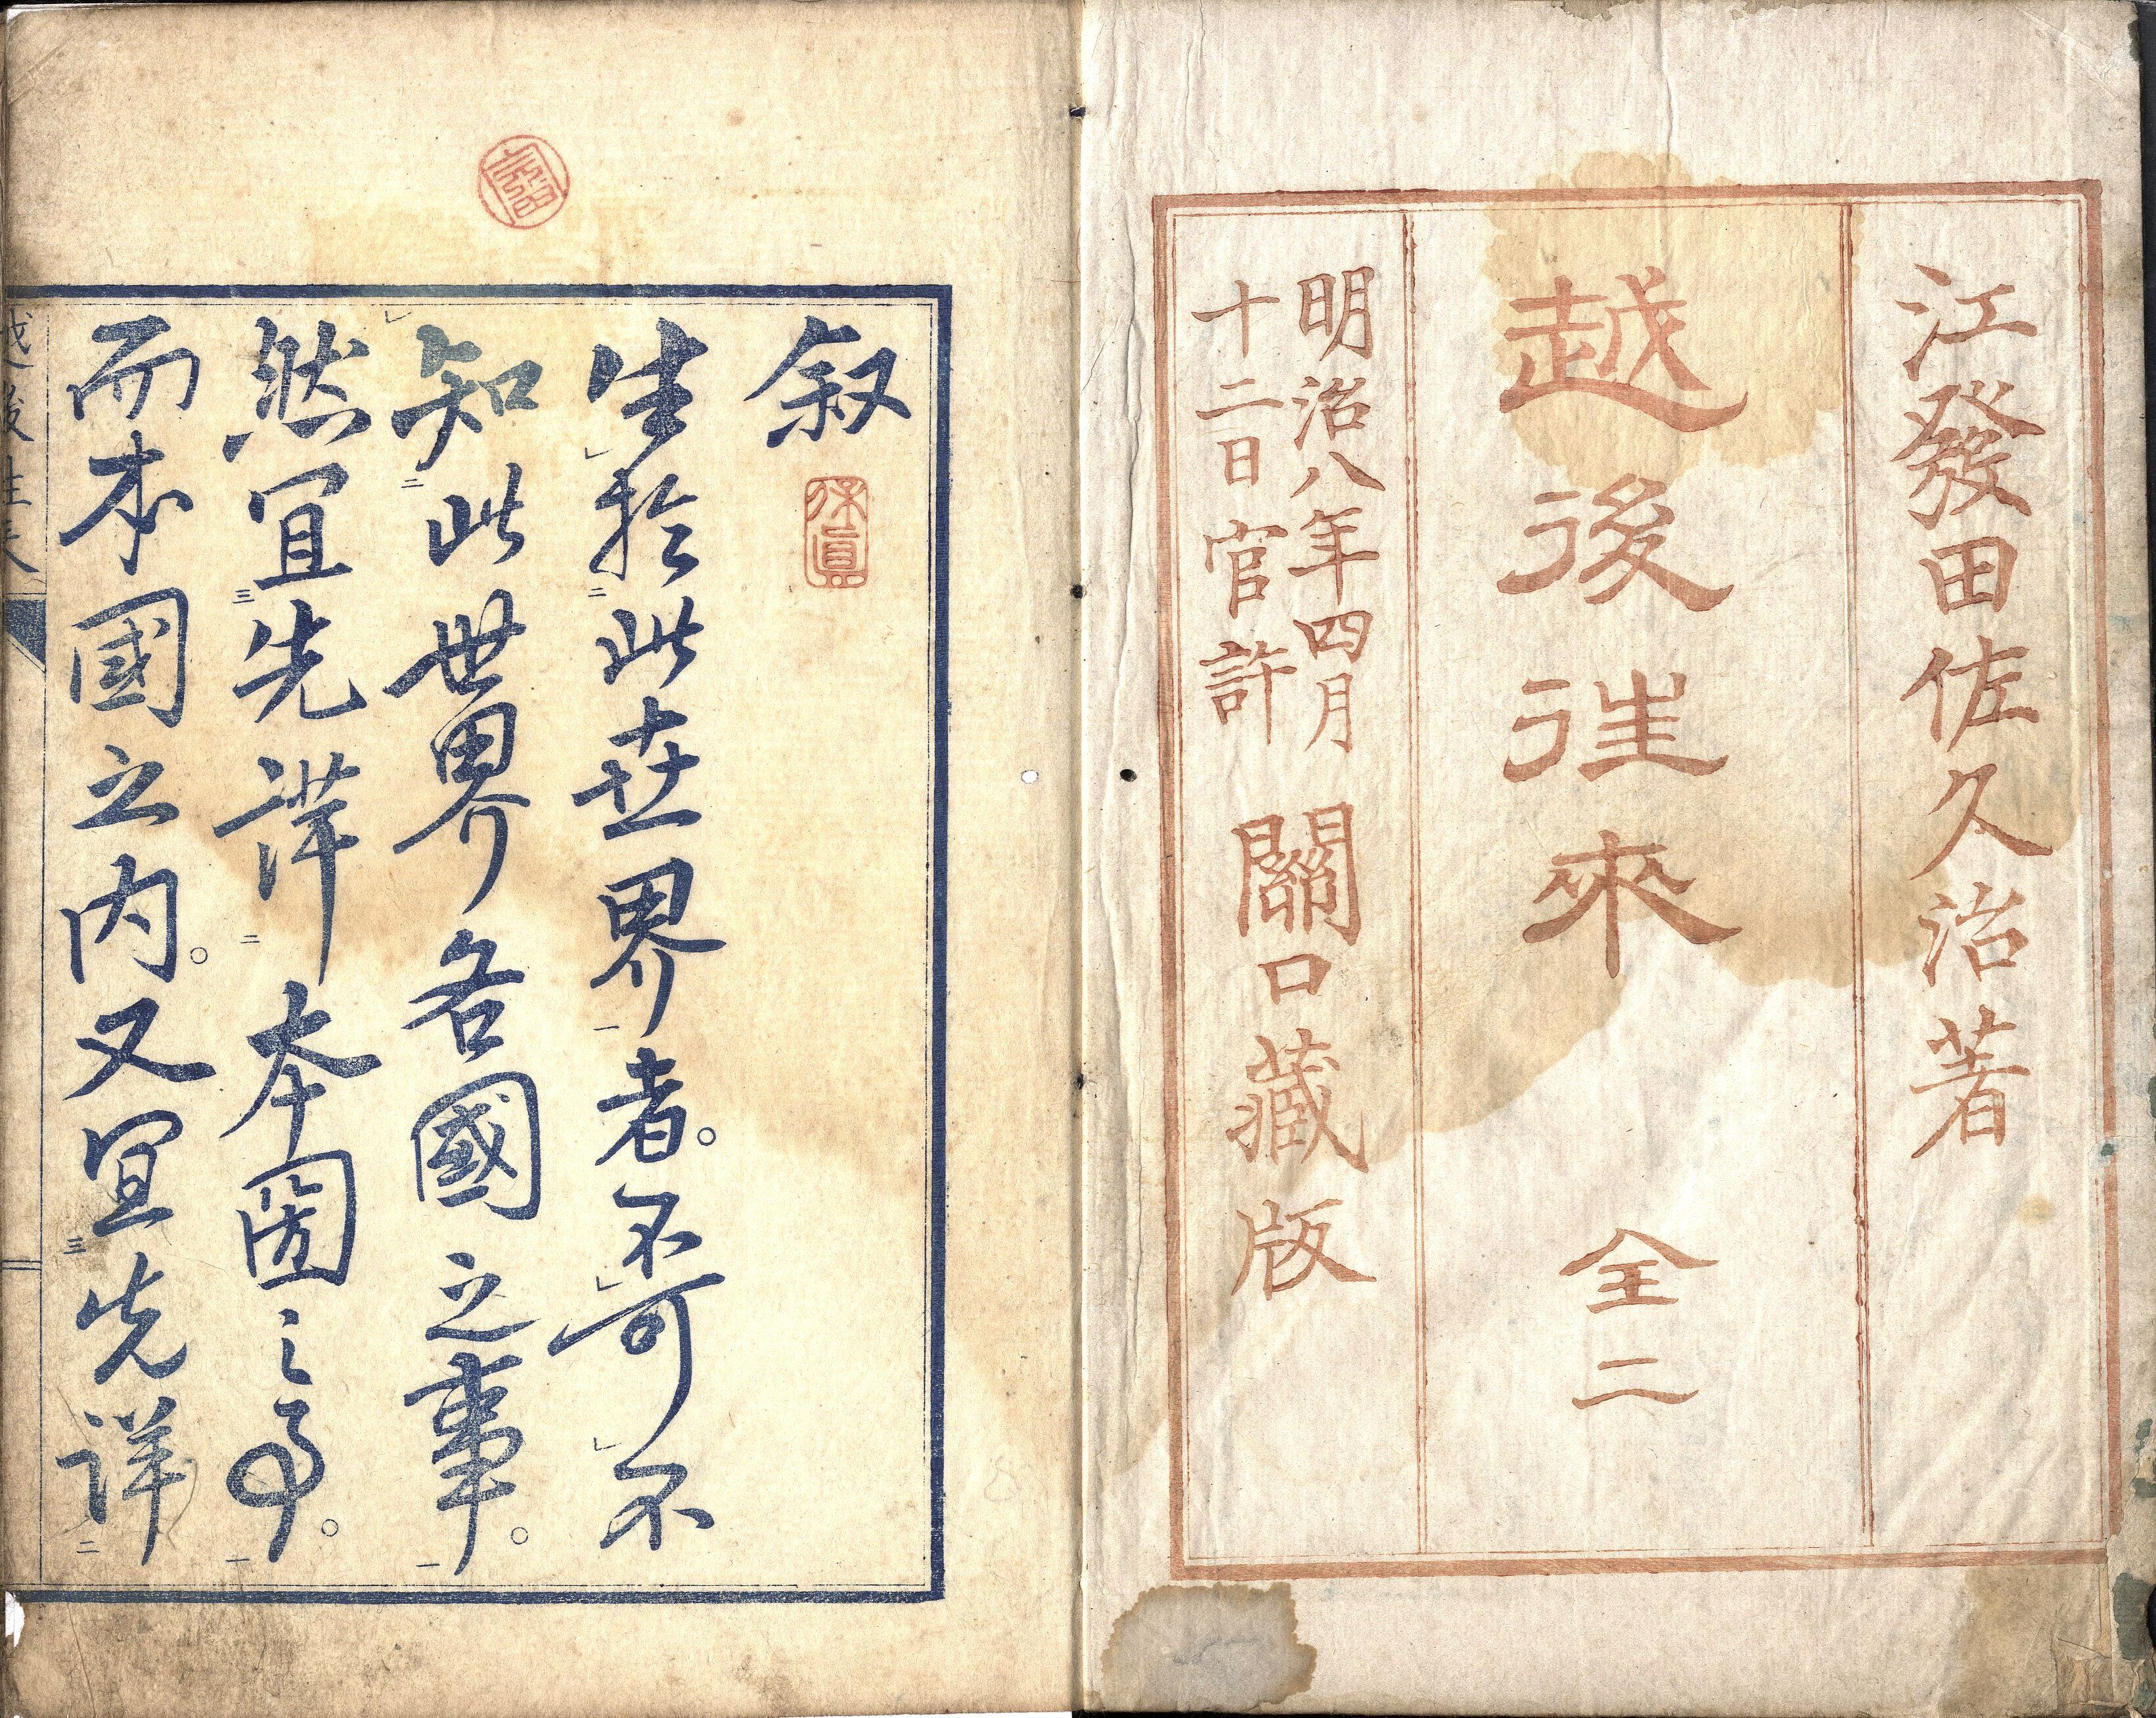 江發田佐久治著
越後徃來 全二
明治八年四月
十二日官許
關口藏版
叙
生於此世界者。不可不
知此世界各國之事。
然宜先詳本圀之事。
而本國之内。又宜先詳
越後往来